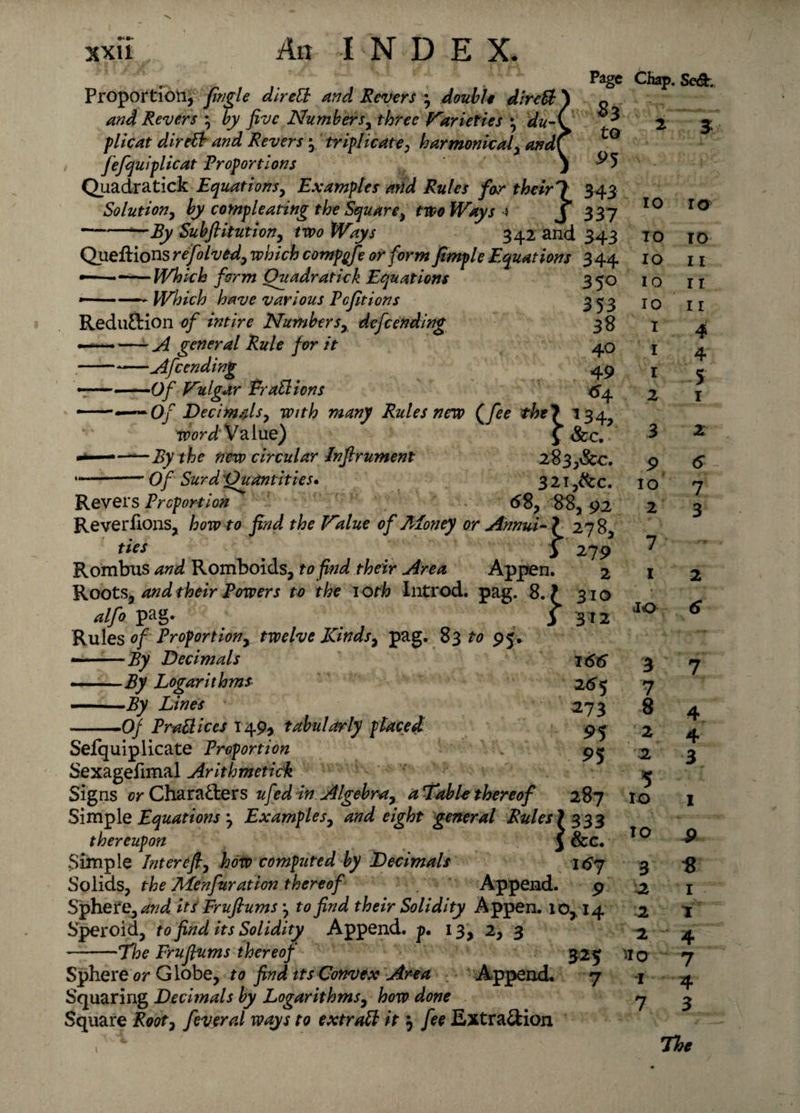 xxii An INDEX.
Page Chap. Sect.
Proportion, single direct and Revers; double direct
and Revers; by five Numbers, three Varieties; du- } 83 to 95 2 3
plicat direct and Revers; triplicate, harmonical, and
sesquiplicat Proportions
Quadratick Equations, Examples and Rules for their } 343
Solution, by compleating the Square, two Ways } 337 10 10
———By Substitution, two Ways 342 and 343 10 10
Questions resolved, which compose or form simple Equations 344 10 11
———Which form Quadratick Equations 350 10 11
———Which have various Positions 353 10 11
Reduction of intire Numbers, descending 38 1 4
———A general Rule for it 40 1 4
———Ascending 49 1 5
———Of Vulgar Fractions 64 2 1
———Of Decimals, with many Rules new (see the } 134,
word Value) } &c. 3 2
———By the new circular Instrument 283,&c. 9 6
———Of Surd Quantities. 321,&c. 10 7
Revers Proportion 68, 88, 92 2 3
Reversions, how to find the Value of Money or Annui- } 278,
ties } 279 7
Rombus and Romboids, to find their Area Appen. 2 1 2
Roots, and their Powers to the 10th Introd. pag. 8. } 310
also pag. } 312 10 6
Rules of Proportion, twelve Kinds, pag. 83 to 95.
———By Decimals 166 3 7
———By Logarithms 265 7
———By Lines 273 8 4
———Of Practices 149, tabularly placed 95 2 4
Sesquiplicate Proportion 95 2 3
Sexagesimal Arithmetick 5
Signs or Characters used in Algebra, a Table thereof 287 10 1
Simple Equations; Examples, and eight general Rules } 333
thereupon } &c. 10 9
Simple Interest, how computed by Decimals 167 3 8
Solids, the Mensuration thereof Append. 9 2 1
Sphere, and its Frustums; to find their Solidity Appen. 10, 14 2 1
Speroid, to find its Solidity Append. p. 13, 2, 3 2 4
———The Frustums thereof 325 10 7
Sphere or Globe, to find its Convex Area Append. 7 1 4
Squaring Decimals by Logarithms, how done 7 3
Square Root, several ways to extract it; see Extraction
The